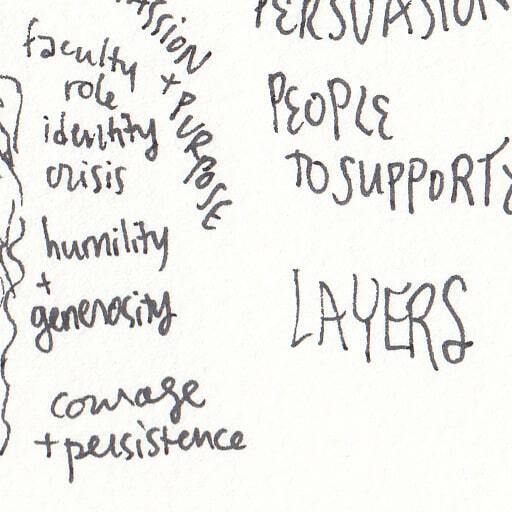 faculty
role
identity
crisis
humility
+
generosity
courage
+ persistence
+ PURPOSE
PEOPLE
TO SUPPORT
LAYERS